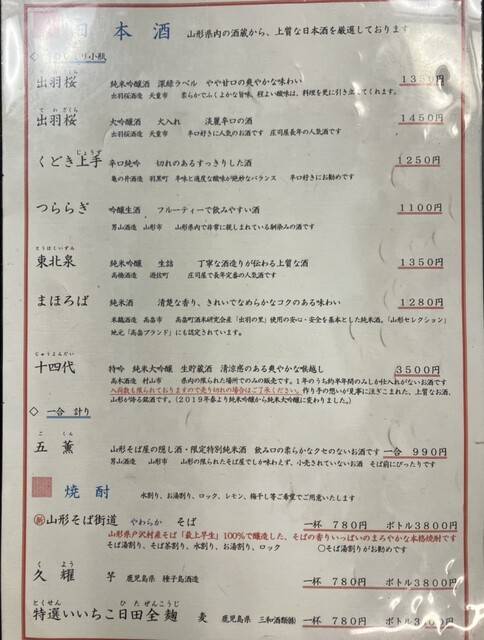 本 酒 山形県内の酒蔵から、上質な日本酒を厳選しております
小瓶
出羽桜 純米吟醸酒 深緑ラベル やや甘口の爽やかな味わい 1350円
出羽桜酒造 天童市 柔らかでふくよかな旨味、程よい酸味は、料理を更に引き立ててくれます。
でわざくら
出羽桜 大吟醸酒 火入れ 淡麗辛口の酒 1450円
出羽桜酒造 天童市 辛口好きに人気のお酒です 庄司屋長年の人気酒です
じょうず
くどき上手 辛口純吟 切れのあるすっきりした酒 1250円
亀の井酒造 羽黒町 辛味と適度な酸味が絶妙なバランス 辛口好きにお勧めです
つららぎ 吟醸生酒 フルーティーで飲みやすい酒 1100円
男山酒造 山形市 山形県内で非常に親しまれている馴染みの酒です
とうほくいずみ
東北泉 純米吟醸 生詰 丁寧な酒造りが伝わる上質な酒 1350円
高橋酒造 遊佐町 庄司屋で長年定番の人気酒です
まほろば 純米酒 清楚な香り、きれいでなめらかなコクのある味わい 1280円
米鶴酒造 高畠市 高畠町酒米研究会産「出羽の里」使用の安心・安全を基本とした純米酒。「山形セレクション」
地元「高畠ブランド」にも認定されています。
じゅうよんだい
十四代 特吟 純米大吟醸 生貯蔵酒 清涼感のある爽やかな喉越し 3500円
高木酒造 村山市 県内の限られた場所でのみの販売です。1年のうち約半年間のみしか仕入れがないお酒です
入荷数も限られておりますので売り切れの場合はご了承ください。作り手の想いが見事に注ぎこまれた、上質なお酒、
山形が誇る銘酒です。(2019年春より純米吟醸から純米大吟醸に変わりました。)
◇ 一合 計り
ご くん
五 薫 山形そば屋の隠し酒・限定特別純米酒 飲み口の柔らかなクセのないお酒です 一合 990円
男山酒造 山形市 山形の限られたそば屋でしか味わえず、小売されていないお酒 そば前にぴったりです
焼 酎 水割り、お湯割り、ロック、レモン、梅干し等ご希望でご用意いたします
㊟山形そば街道 やわらか そば 一杯 780円 ボトル3800円
山形県戸沢村産そば「最上早生」100%で醸造した、そばの香りいっぱいのまろやかな本格焼酎です
そば湯割り、そば茶割り、水割り、お湯割り、ロック ○そば湯割りがお勧めです
くよう
久 耀 芋 鹿児島県 種子島酒造 一杯 780円 ボトル3800円
とくせん ひたぜんこうじ
特選いいちこ日田全麹 麦 鹿児島県 三和酒類㈱ 一杯 780円 ボトル3800円